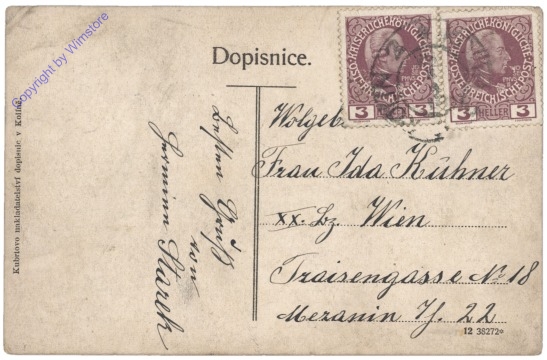 Copyright by Wimstore
Dopisnice.
KAISERLICHE KÖNIGLICHE
ÖSTERREICHISCHE POST
3 HELLER 3
KAISERLICHE KÖNIGLICHE
ÖSTERREICHISCHE POST
3 HELLER 3
Wolgeb
Frau Ida Kühner
XX. Bz. Wien
Traisengasse No 18
Mezanin T. 22
12 38272
Besten Gruß
von
Starek
nakladatelství dopisnic v Kolíně